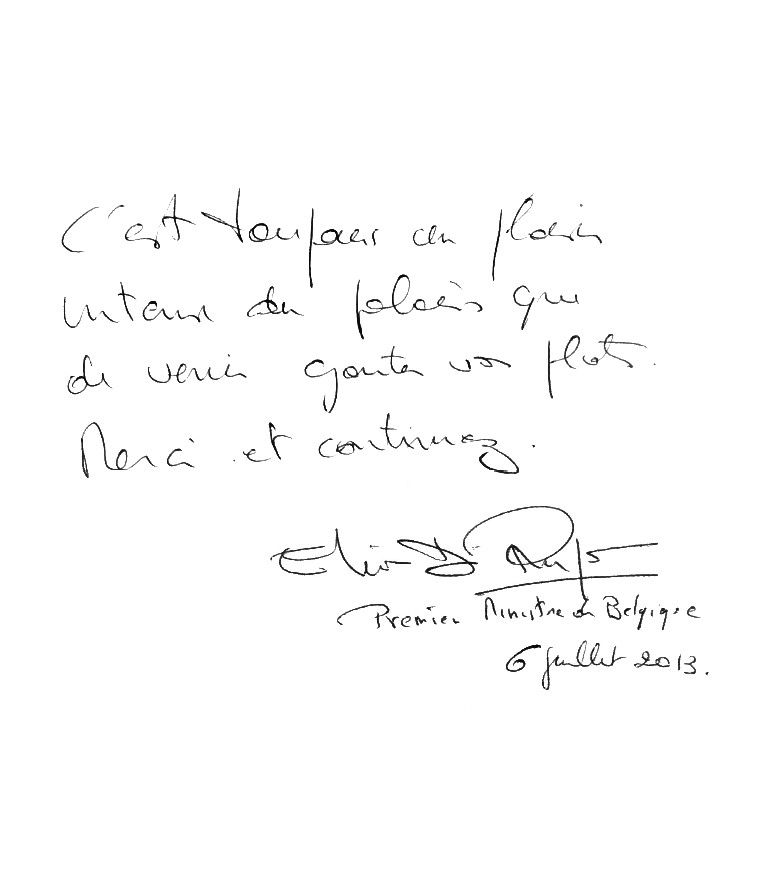 C'est toujours un plaisir
intense du palais que
de venir gouter vos plats.
Merci et continuez.
Elio Di Rupo
Premier Ministre de Belgique
6 juillet 2013.